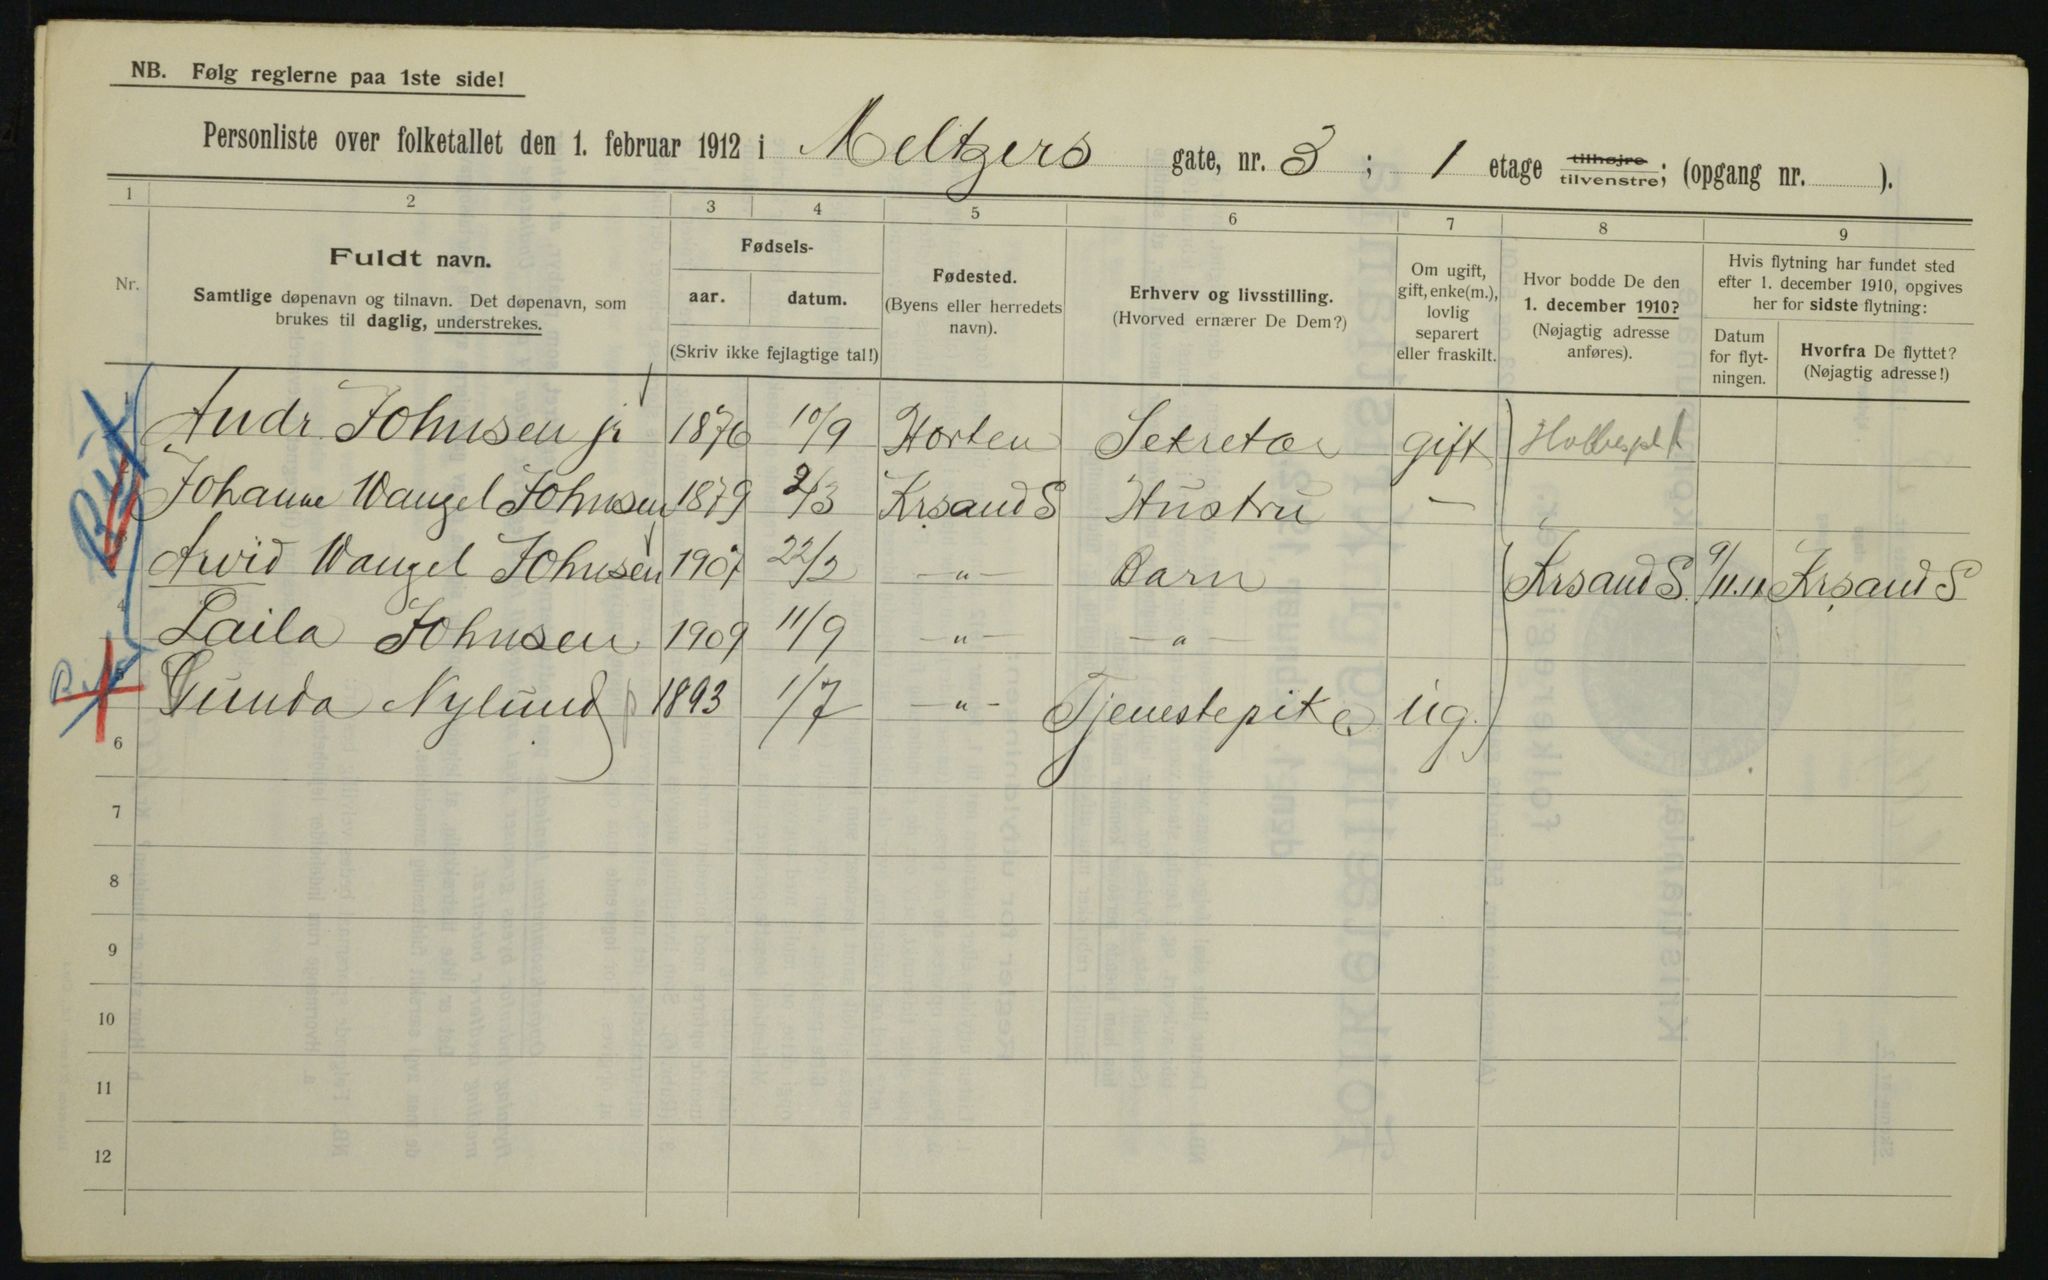 NB. Følg reglerne paa 1ste side!
Personliste over folketallet den 1. februar 1912 i Meltzers gate, nr. 3 ; 1 etage tilhøjre tilvenstre; (opgang nr. ).
1 2 3 4 5 6 7 8 9
Nr.
Fuldt navn.
Samtlige døpenavn og tilnavn. Det døpenavn, som
brukes til daglig, understrekes.
Fødsels-
aar. datum.
(Skriv ikke fejlagtige tal!)
Fødested.
(Byens eller herredets
navn).
Erhverv og livsstilling.
(Hvorved ernærer De Dem?)
Om ugift,
gift, enke(m.),
lovlig
separert
eller fraskilt.
Hvor bodde De den
1. december 1910?
(Nøjagtig adresse
anføres).
Hvis flytning har fundet sted
efter 1. december 1910, opgives
her for sidste flytning:
Datum
for flyt-
ningen.
Hvorfra De flyttet?
(Nøjagtig adresse!)
1 Andr. Johnsen jr 1876 10/9 Horten Sekretær gift
2 Johanne Wangel Johnsen 1879 2/3 Krsand S Hustru —
3 Arvid Wangel Johnsen 1907 22/2 —"— Barn Krsand S. 9/11.11 Krsand S
4 Laila Johnsen 1909 11/9 —"— —"—
5 Gunda Nylund 1893 1/7 —"— Tjenestepike ug.
6
7
8
9
10
11
12